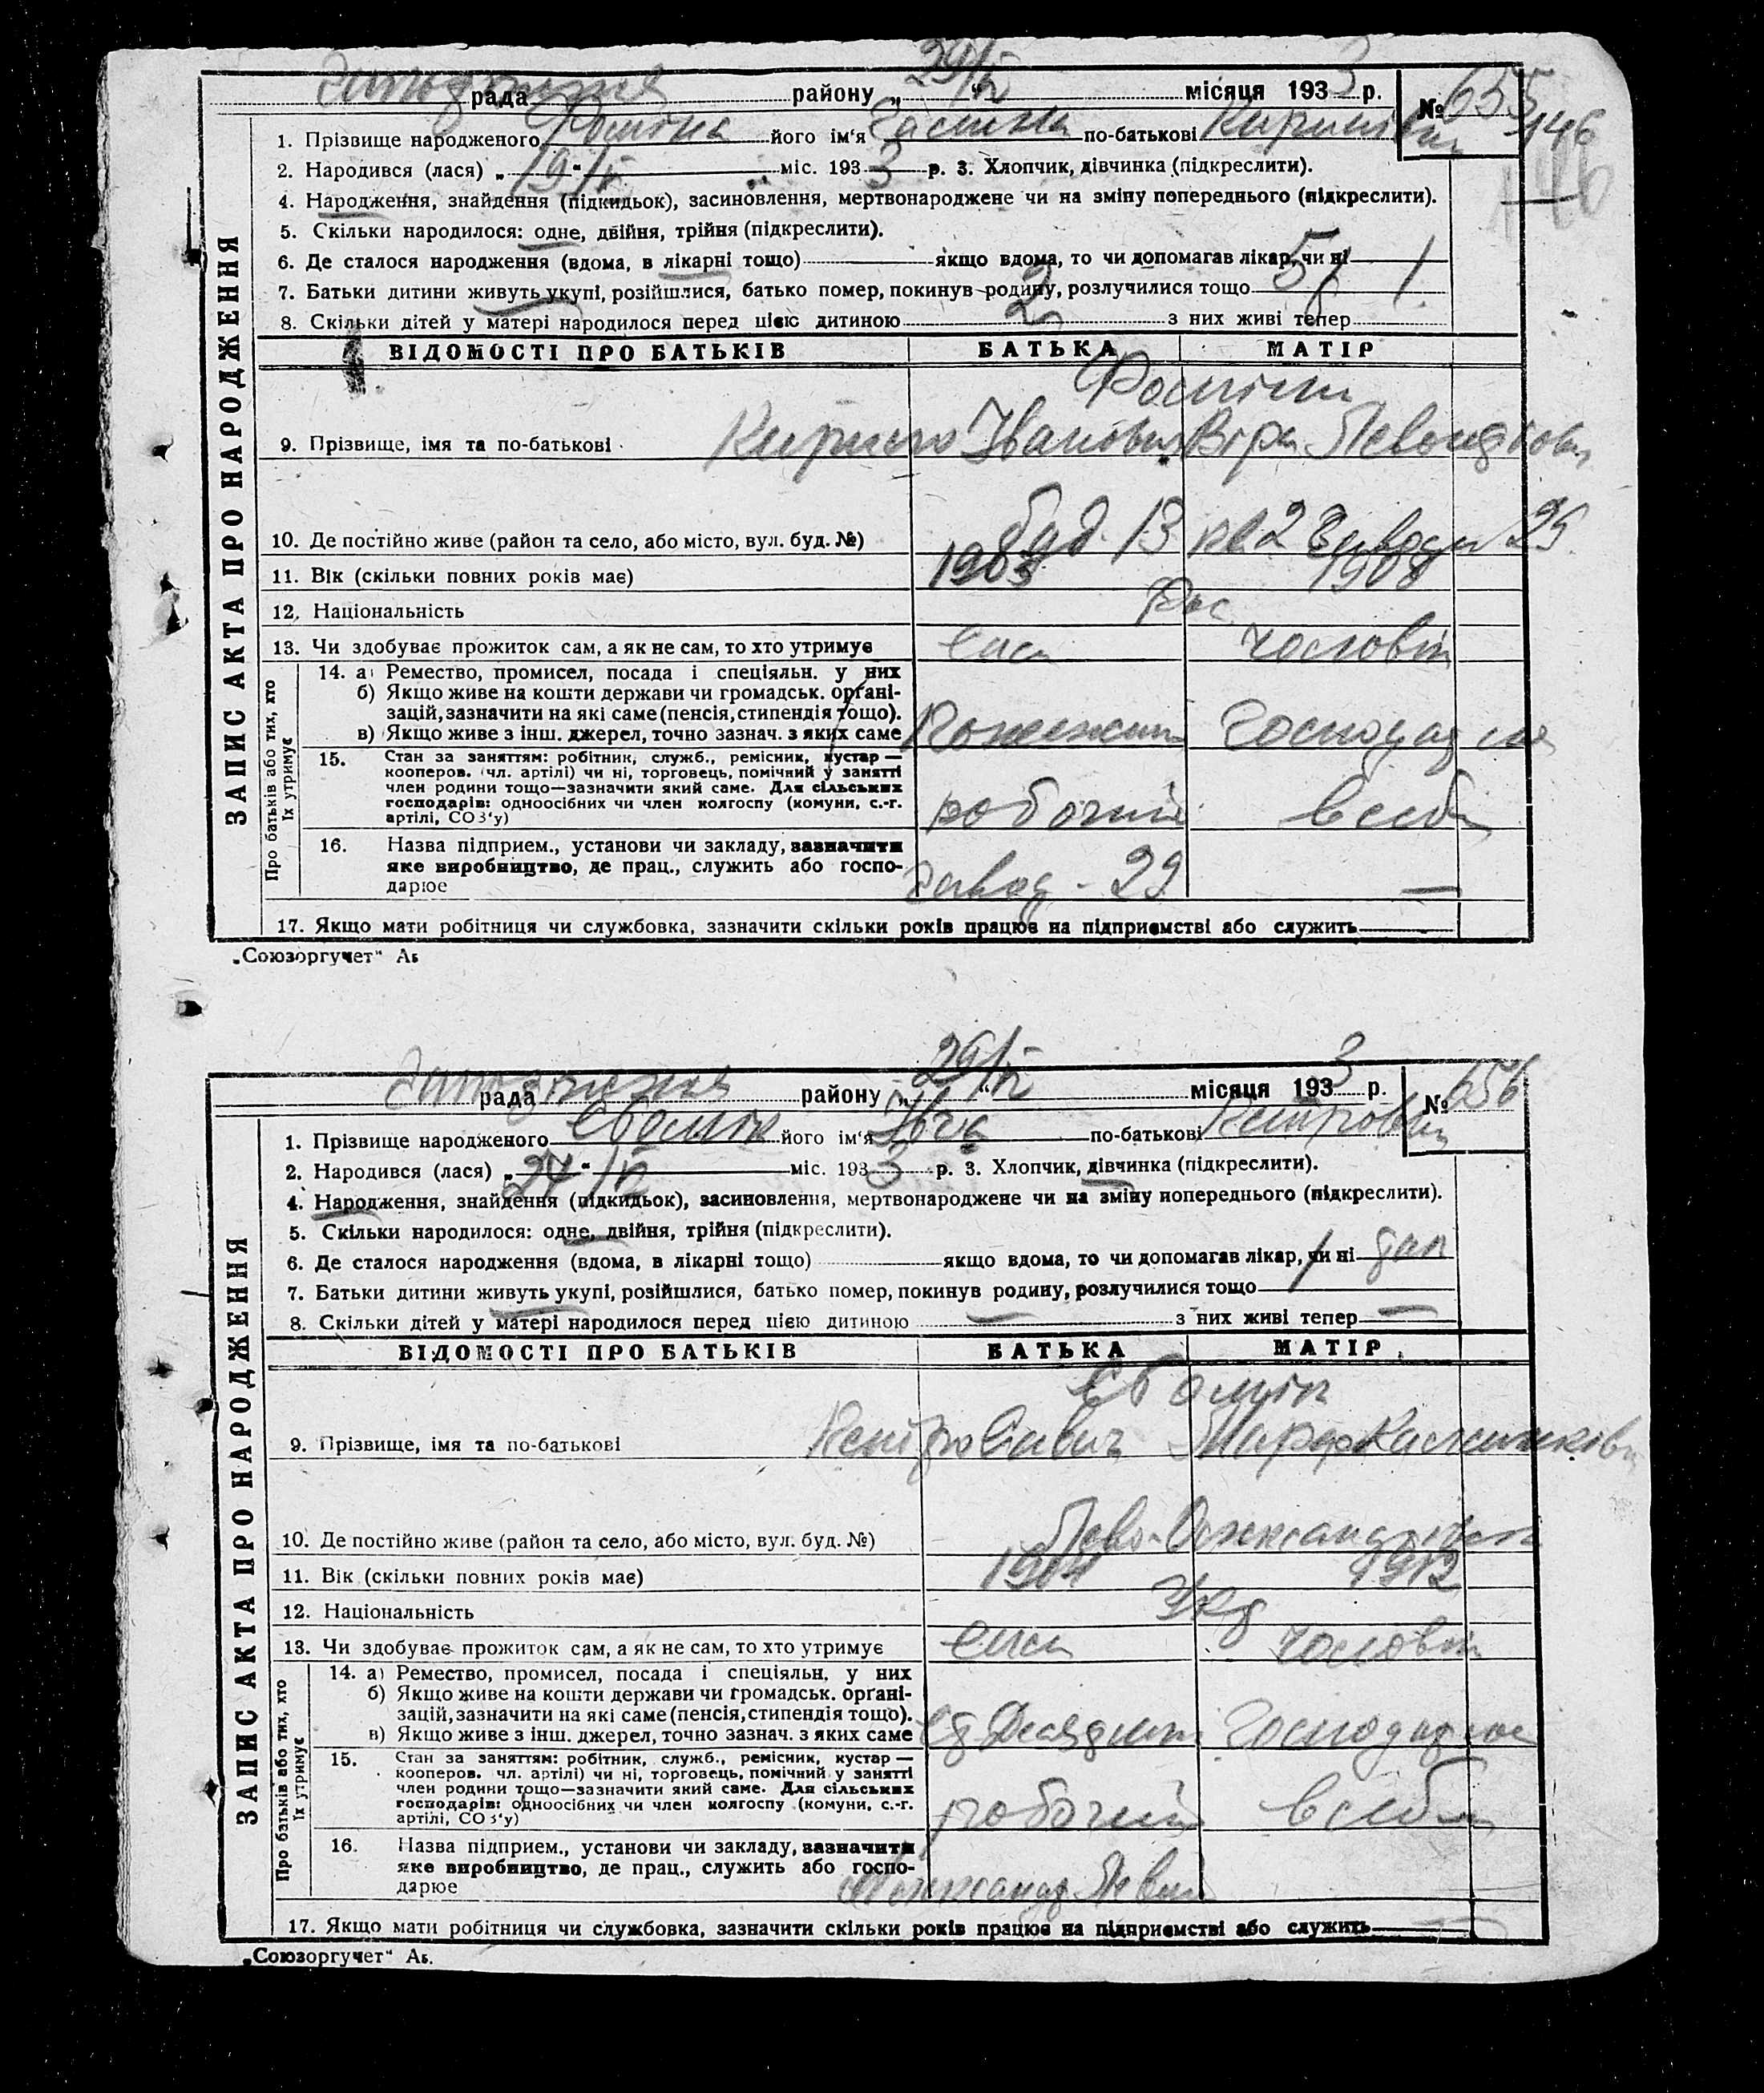 рада району „29/IV“ місяця 1933 р. № 655
146
1. Прізвище народженого його ім‘я Галина по-батькові
2. Народився (лася) „19/IV“ міс. 1933 р. 3. Хлопчик, дівчинка (підкреслити).
4. Народження, знайдення (підкидьок), засиновлення, мертвонароджене чи на зміну попереднього (підкреслити).
5. Скільки народилося: одне, двійня, трійня (підкреслити).
6. Де сталося народження (вдома, в лікарні тощо) якщо вдома, то чи допомагав лікар, чи ні
7. Батьки дитини живуть укупі, розійшлися, батько помер, покинув родину, розлучилися тощо
8. Скільки дітей у матері народилося перед цією дитиною 2 з них живі тепер
ЗАПИС АКТА ПРО НАРОДЖЕННЯ
ВІДОМОСТІ ПРО БАТЬКІВ БАТЬКА МАТІР
9. Прізвище, імя та по-батькові Кирило Іванович Віра
10. Де постійно живе (район та село, або місто, вул. буд. №) буд. 13 кв 2 29
11. Вік (скільки повних років має) 1903 1908
12. Національність Рос
13. Чи здобуває прожиток сам, а як не сам, то хто утримує сам чоловік
Про батьків або тих, хто їх утримує
14. а) Ремество, промисел, посада і спеціяльн. у них
б) Якщо живе на кошти держави чи громадськ. орґані-
зацій, зазначити на які саме (пенсія, стипендія тощо).
в) Якщо живе з інш. джерел, точно зазнач. з яких саме
15. Стан за заняттям: робітник, служб., ремісник, кустар —
кооперов. (чл. артілі) чи ні, торговець, помічний у занятті
член родини тощо—зазначити який саме. Для сільських
господарів: одноосібних чи член колгоспу (комуни, с.-г.
артілі, СОЗ‘у) робочий
16. Назва підприєм., установи чи закладу, зазначити
яке виробництво, де прац., служить або госпо-
дарює завод - 29 —
17. Якщо мати робітниця чи службовка, зазначити скільки років працює на підприємстві або служить
„Союзоргучет“
рада району „29/IV“ місяця 1933 р. № 656
1. Прізвище народженого його ім‘я по-батькові Петровна
2. Народився (лася) „27/IV“ міс. 1933 р. 3. Хлопчик, дівчинка (підкреслити).
4. Народження, знайдення (підкидьок), засиновлення, мертвонароджене чи на зміну попереднього (підкреслити).
5. Скільки народилося: одне, двійня, трійня (підкреслити).
6. Де сталося народження (вдома, в лікарні тощо) якщо вдома, то чи допомагав лікар, чи ні
7. Батьки дитини живуть укупі, розійшлися, батько помер, покинув родину, розлучилися тощо
8. Скільки дітей у матері народилося перед цією дитиною — з них живі тепер —
ЗАПИС АКТА ПРО НАРОДЖЕННЯ
ВІДОМОСТІ ПРО БАТЬКІВ БАТЬКА МАТІР
9. Прізвище, імя та по-батькові Петро Савич
10. Де постійно живе (район та село, або місто, вул. буд. №)
11. Вік (скільки повних років має) 1904 1912
12. Національність Укр
13. Чи здобуває прожиток сам, а як не сам, то хто утримує сам чоловік
Про батьків або тих, хто їх утримує
14. а) Ремество, промисел, посада і спеціяльн. у них
б) Якщо живе на кошти держави чи громадськ. орґані-
зацій, зазначити на які саме (пенсія, стипендія тощо).
в) Якщо живе з інш. джерел, точно зазнач. з яких саме
15. Стан за заняттям: робітник, служб., ремісник, кустар —
кооперов. чл. артілі) чи ні, торговець, помічний у занятті
член родини тощо—зазначити який саме. Для сільських
господарів: одноосібних чи член колгоспу (комуни, с.-г.
артілі, СОЗ‘у) робочий
16. Назва підприєм., установи чи закладу, зазначити
яке виробництво, де прац., служить або госпо-
дарює
17. Якщо мати робітниця чи службовка, зазначити скільки років працює на підприємстві або служить
„Союзоргучет“